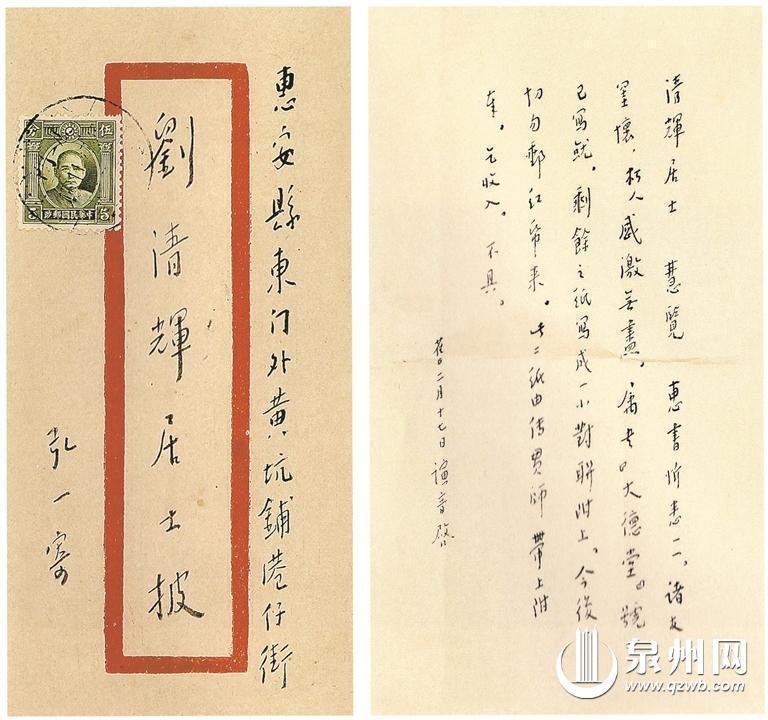 惠安縣東门外黄坑鋪港仔街
劉清輝居士披
弘一寄
伍 分
5 政郵國民華中 5
清輝居士 慧覽 惠書忻悉一一。诸友
罣懷，朽人感激无盡。属書『大德堂』號
已寫就。剩餘之纸寫成一小對聯附上。今後
切勿郵红帋来。此二纸由传贯师帶上附
奉。乞收入。不具。
舊二月十七日 演音啓
泉州网
www.qzwb.com